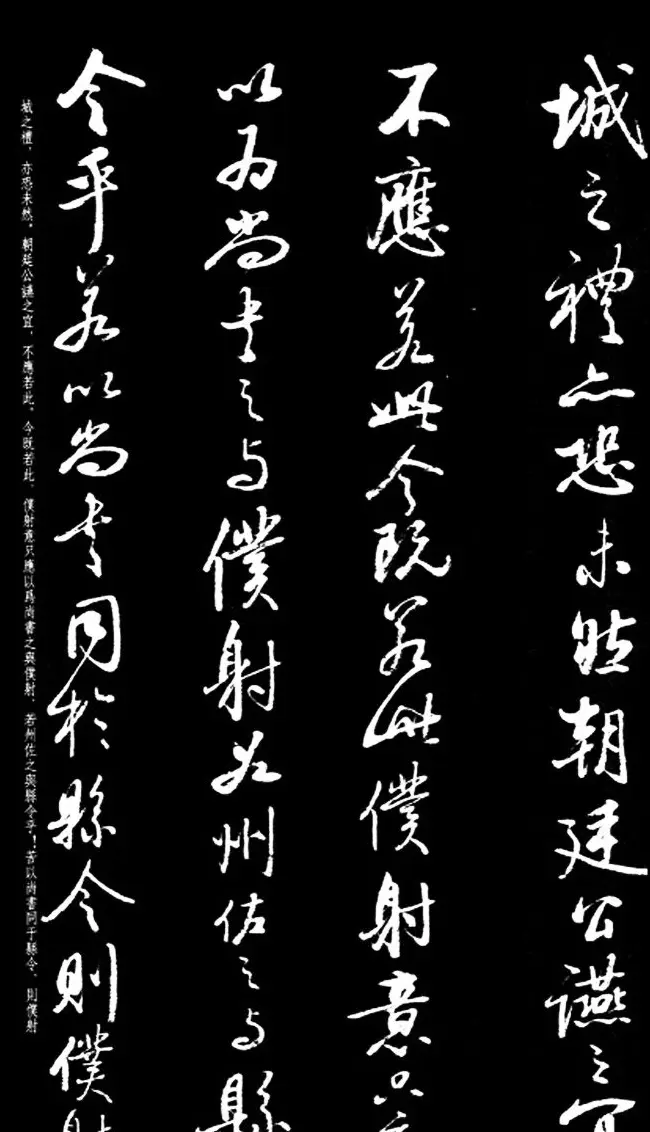 城之禮亦恐未然朝廷公讌之宜
不應若此今既若此僕射意只應
以為尚書之与僕射若州佐之与縣
令乎若以尚書同於縣令則僕射
城之禮，亦恐未然。朝廷公讌之宜，不應若此。今既若此，僕射意只應以爲尚書之與僕射，若州佐之與縣令乎！若以尚書同于縣令，則僕射